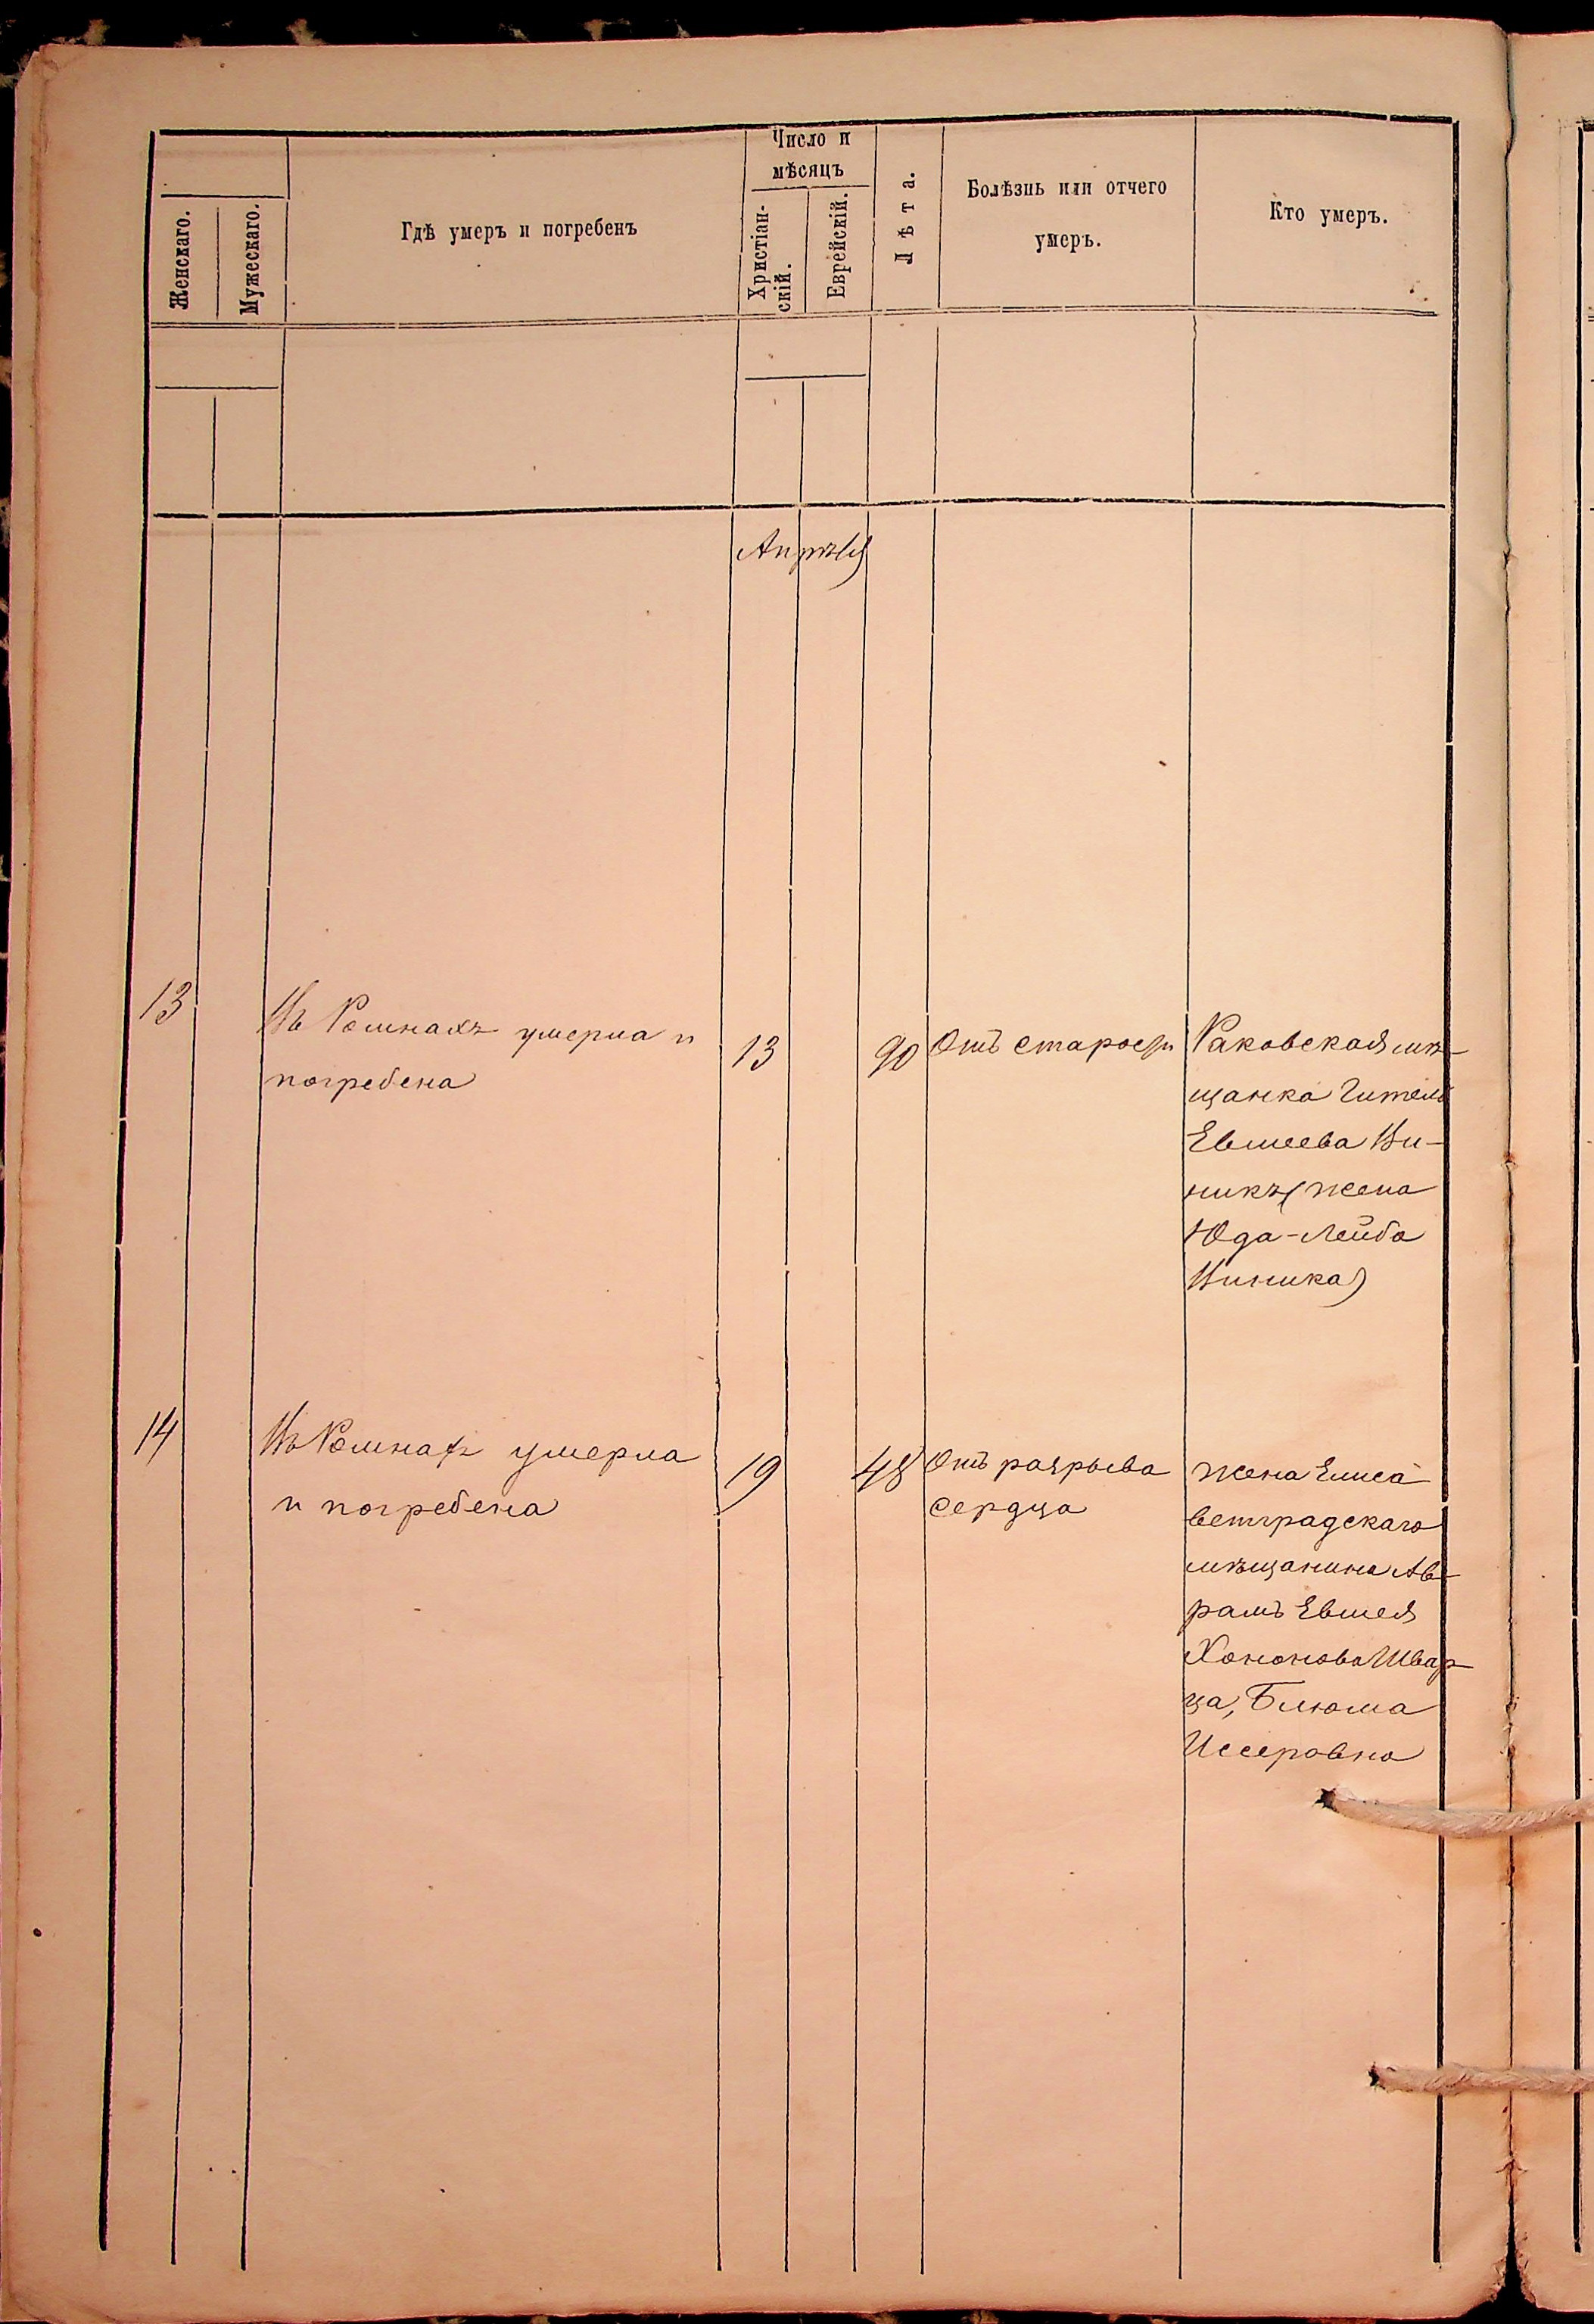 Женскаго.
Мужескаго.
Гдѣ умеръ и погребенъ
Число и
мѣсяцъ
Христіан-
скій.
Еврейскій.
Лѣта.
Болѣзнь или отчего
умеръ.
Кто умеръ.
Апрѣля
13
Въ Ромнахъ умерла и
погребена
13
90
Отъ старости
Раковская мѣ-
щанка Гитель
Евшеева Ви-
никъ (жена
Юда-Лейба
Виника)
14
Въ Ромнахъ умерла
и погребена
19
48
Отъ разрыва
сердца
жена Елиса
ветградскаго
мѣщанина Ав-
рамъ Евшея
Хононова Швар-
ца, Блюма
Иссеровна